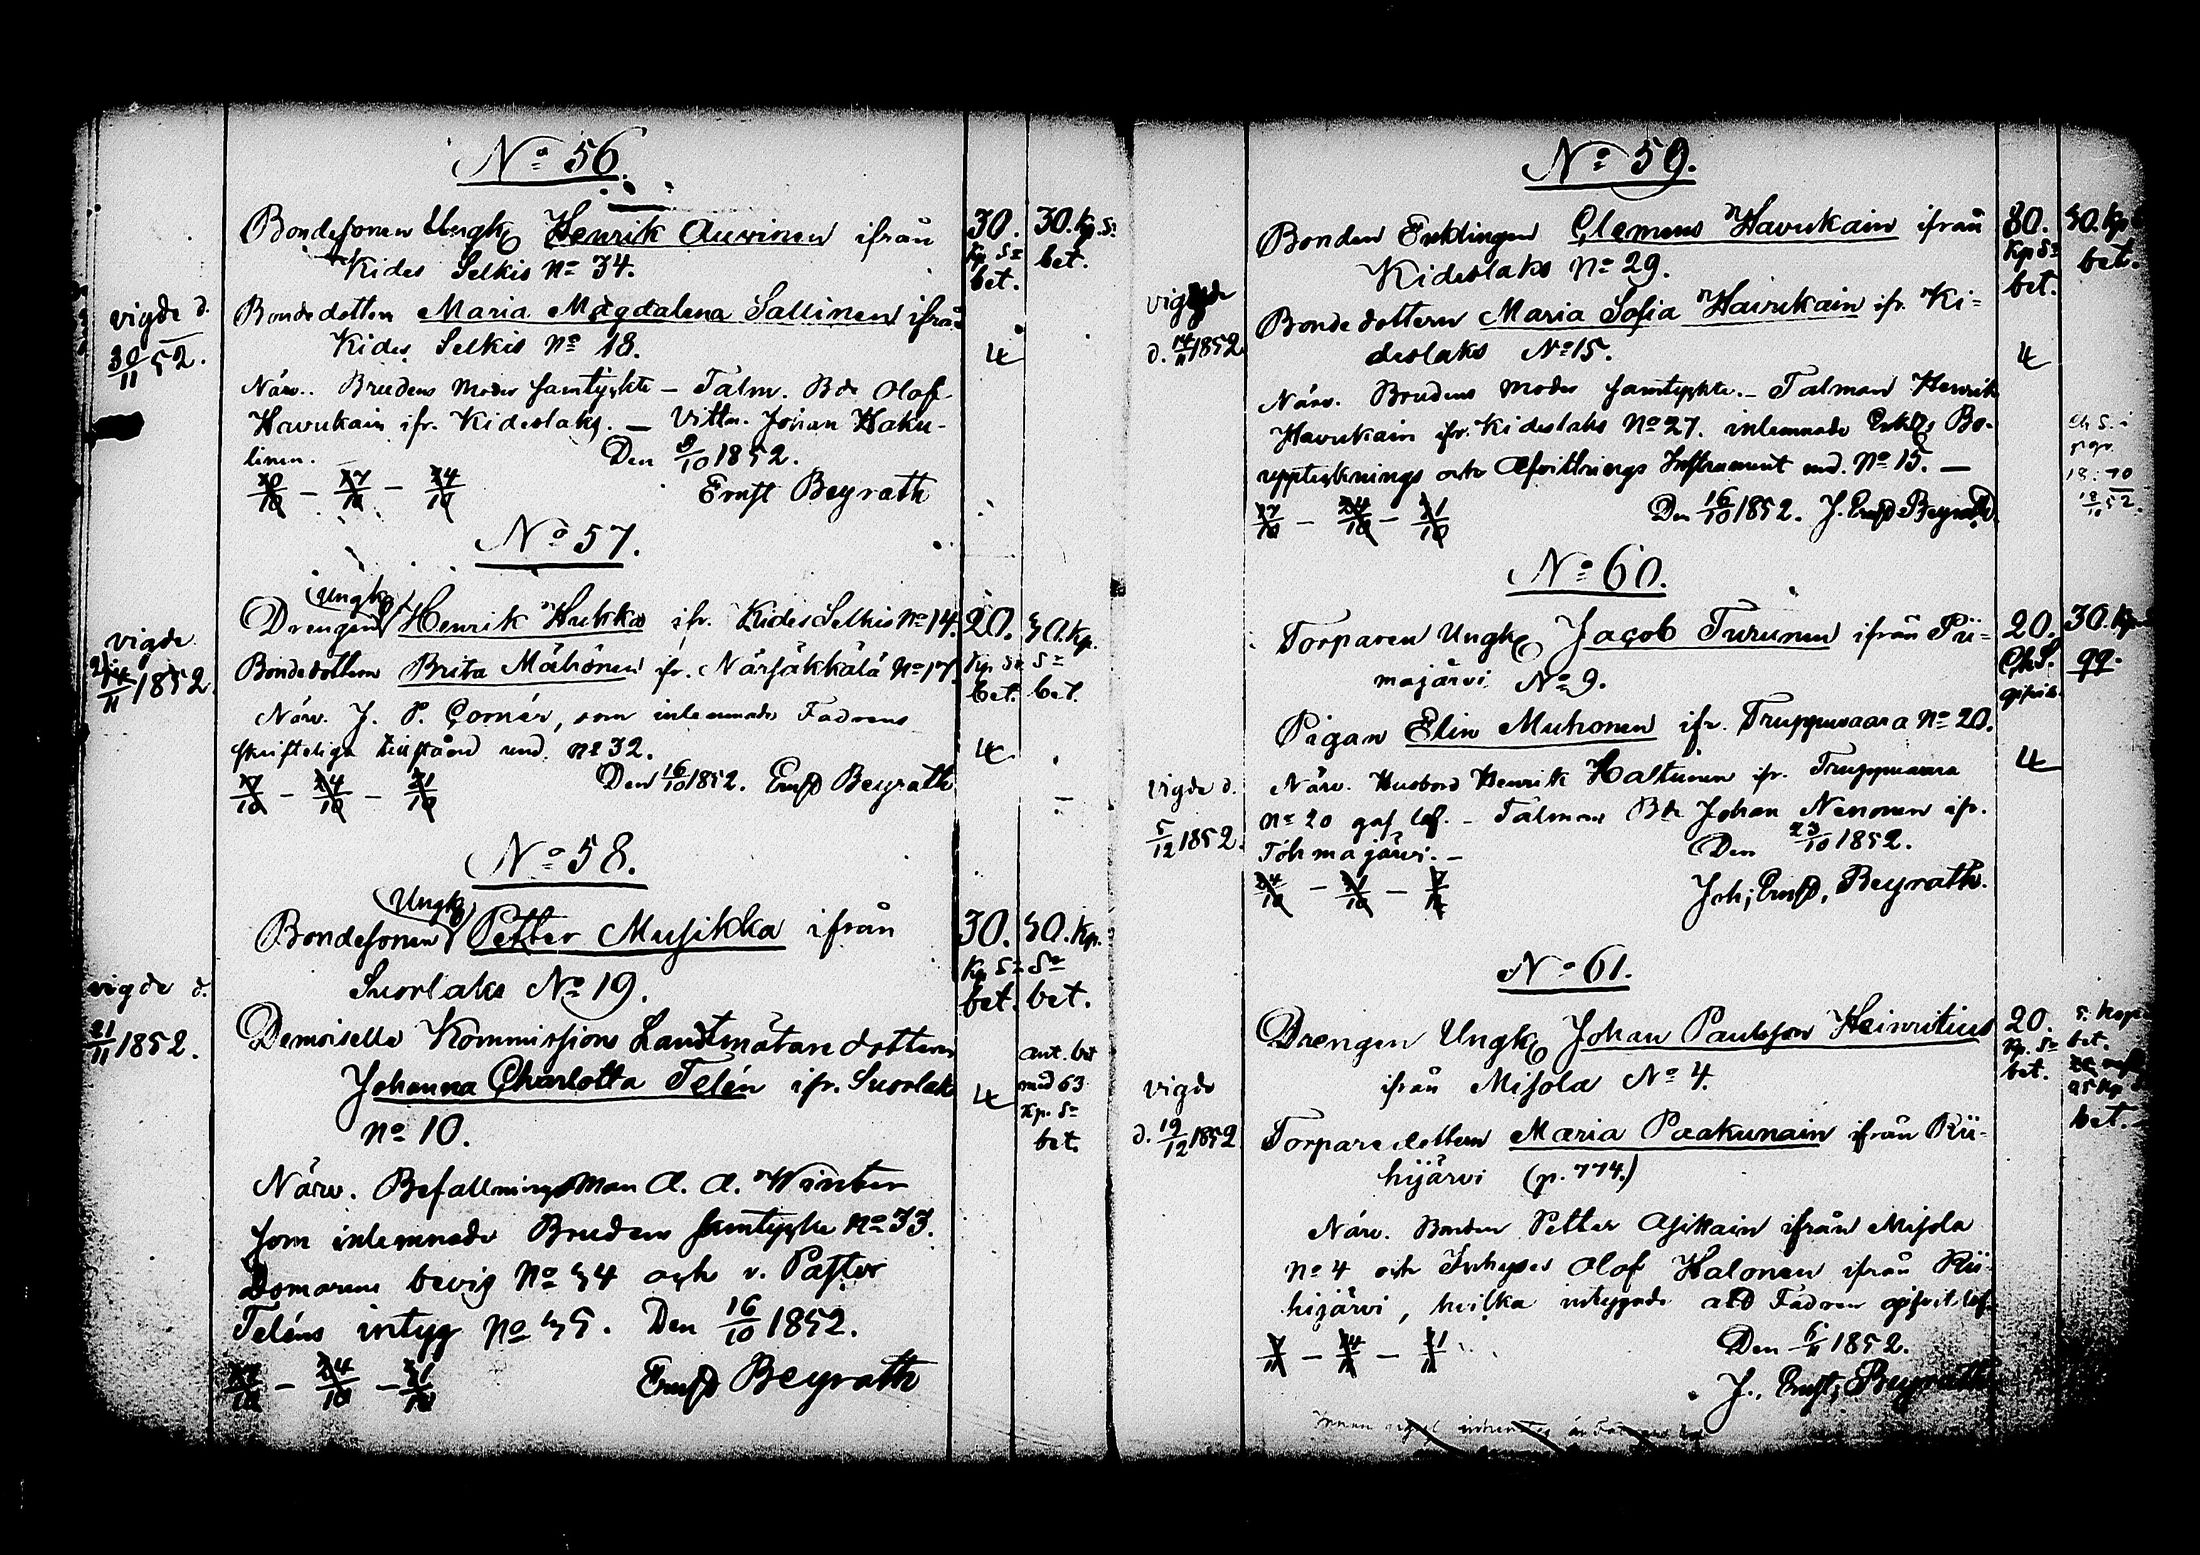 No 56.
Bondesonen Ungk Henrik Auvinen ifrån
Kides Selkis No 34.
30. Kp Sr bet.
30. Kp. Sr bet.
vigde d. 30/11 52.
Bondedottern Maria Magdalena Sallinen ifrån
Kides Selkis No 18.
4
Närv. Brudens Moder samtyckte – Talm. Bde Olof
Havukain ifr. Kideslaks. – Vittn. Johan Haku-
linen. Den 9/10 1852.
10/10 – 17/10 – 24/10 Ernst Beyrath
No 57.
Ungk
Drengen Henrik Hukka ifr. Kides Selkis No 14.
20. Kp. Sr bet.
30. Kp. Sr bet.
vigde 1852
Bondedottern Brita Mähönen ifr. Närsäkkälä No 17.
Närv. J. P. Cornér, som inlemnade Fadrens
skrifteliga tillstånd und. No 32.
4
Den 16/10 1852. Ernst Beyrath
17/10 – 24/10 – 31/10
No 58.
Ungk
Bondesonen Petter Musikka ifrån
Suorlaks No 19.
30. Kp Sr bet.
30. Kp. Sr bet.
vigde d. 21/11 1852.
Demoiselle Kommissions Landtmätare dottern
Johanna Charlotta Telén ifr. Suorlaks
No 10.
4
ant. bet med 63 Kp. Sr bet.
Närv. Befallningsman A. A. Winter
som inlemnade Brudens samtycke No 33.
Domarens bevis No 34 och v. Pastor
Teléns intyg No 35. Den 16/10 1852.
17/10 – 24/10 – 31/10
Ernst Beyrath
No 59.
Bonden Enklingen Clemens Havukain ifrån
Kideslaks No 29.
30. Kp Sr bet.
30. Kp bet.
vigde d. 14/11 1852
Bondedottern Maria Sofia Havukain ifr. Ki-
deslaks No 15.
4
Närv. Brudens Moder samtyckte. – Talman Henrik
Havukain ifr. Kideslaks No 27. inlemnade Enkl. Bo-
uppteknings och Afvittrings Instrument und. No 15. –
17/10 – 24/10 – 31/10 Den 16/10 1852. J. Ernst Beyrath
No 60.
Torparen Ungk Jacob Turunen ifrån Pii-
majärvi No 9.
20.
30. Kp
Pigan Elin Muhonen ifr. Truppuvaara No 20.
4
vigde d. 5/12 1852.
Närv. Husbond Henrik Haltunen ifr. Truppuvaara
No 20 gaf lof. – Talman Bde Johan Nenonen ifr.
Tohmajärvi. – Den 23/10 1852.
24/10 – 31/10 – 7/11 Joh; Ernst, Beyrath.
No 61.
Drengen Ungk Johan Paulsson Heinritius
ifrån Misola No 4.
20. Kp. Sr bet.
5. Kop bet.
25 Kp bet.
vigde d. 19/12 1852
Torparedottern Maria Paakunain ifrån Rii-
hijärvi (p. 774.)
Närv. Bonden Petter Asikain ifrån Misola
No 4 och Inhyses Olof Halonen ifrån Rii-
hijärvi, hvilka intygade att Fadren gifvit lof.
7/11 – 14/11 – 21/11 Den 6/11 1852.
J., Ernst, Beyrath